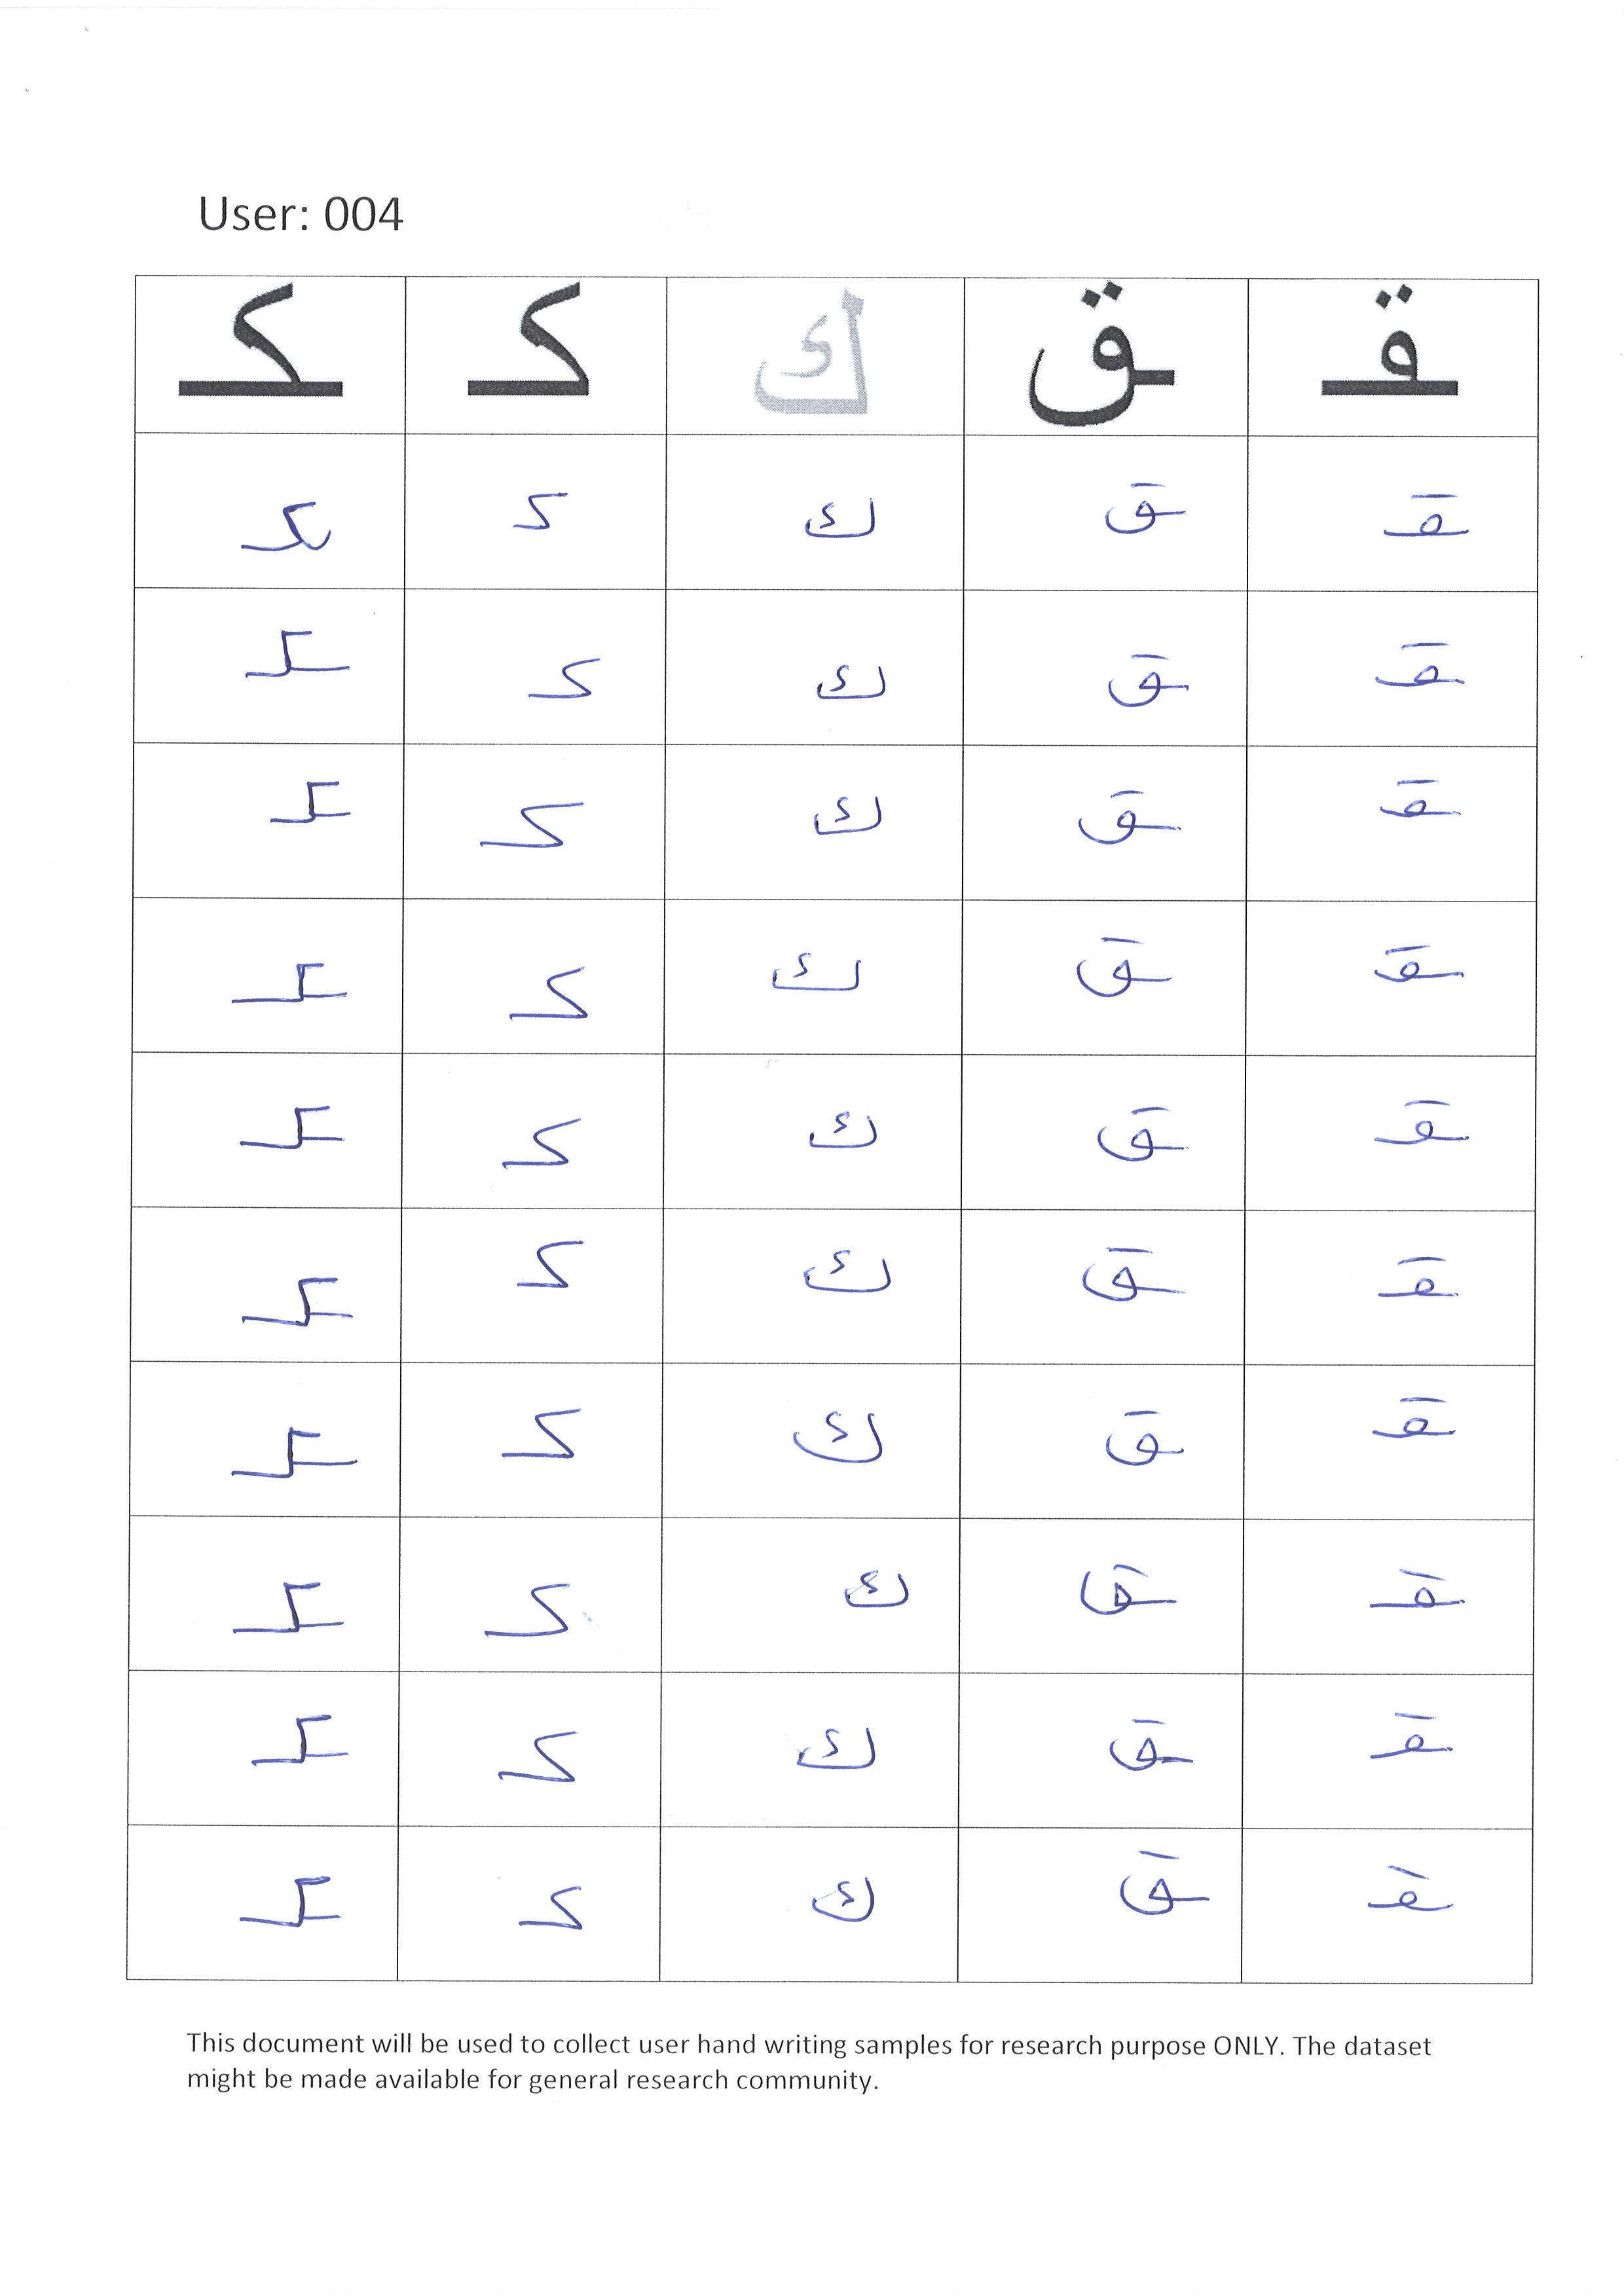 User: 004
ـقـ ـق ك كـ ـكـ
ـقـ ـق ك كـ ـكـ
ـقـ ـق ك كـ ـكـ
ـقـ ـق ك كـ ـكـ
ـقـ ـق ك كـ ـكـ
ـقـ ـق ك كـ ـكـ
ـقـ ـق ك كـ ـكـ
ـقـ ـق ك كـ ـكـ
ـقـ ـق ك كـ ـكـ
ـقـ ـق ك كـ ـكـ
ـقـ ـق ك كـ ـكـ
This document will be used to collect user hand writing samples for research purpose ONLY. The dataset
might be made available for general research community.